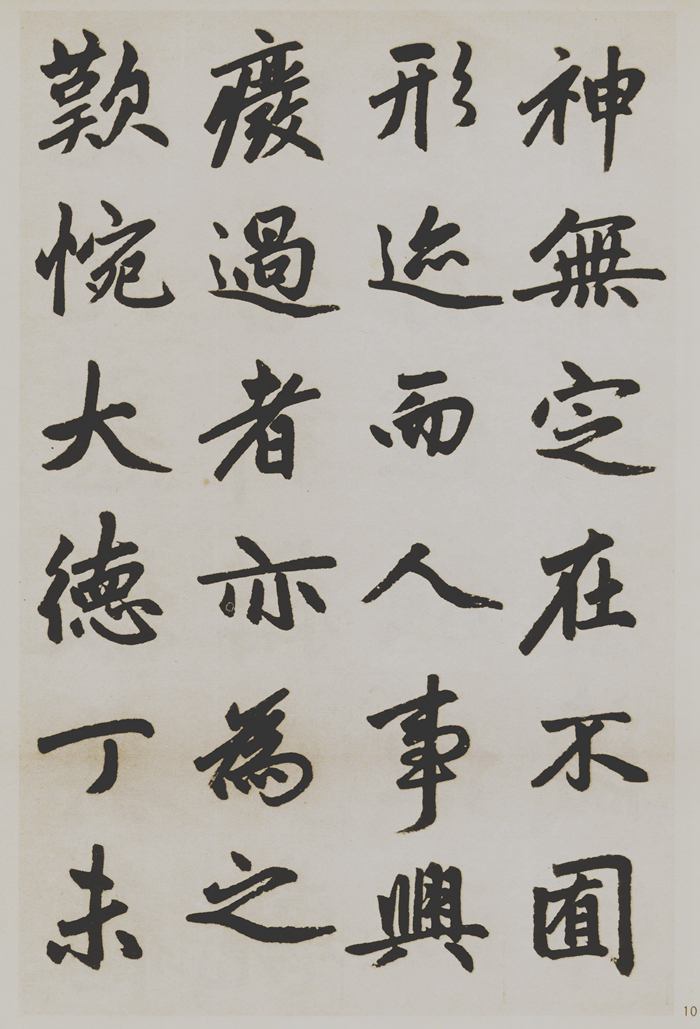 神無定在不囿
形迹而人事興
癈過者亦為之
歎惋大德丁未
10